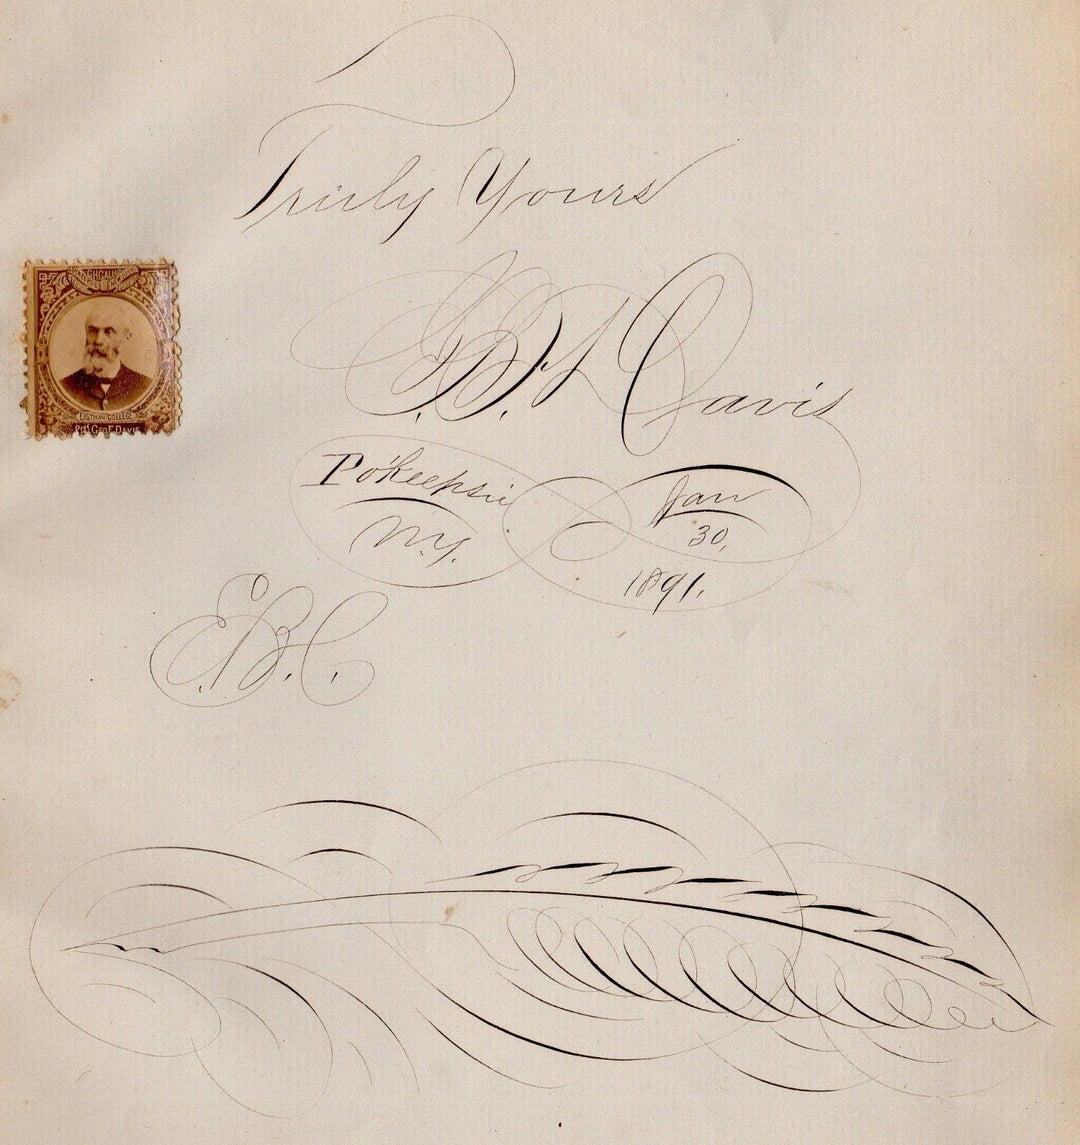 Truly Yours
G. F. Davis
Po'keepsie
N.Y.
Jan
30,
1891.
E.B.C.
EASTMAN COLLEGE
Prof Geo. F. Davis